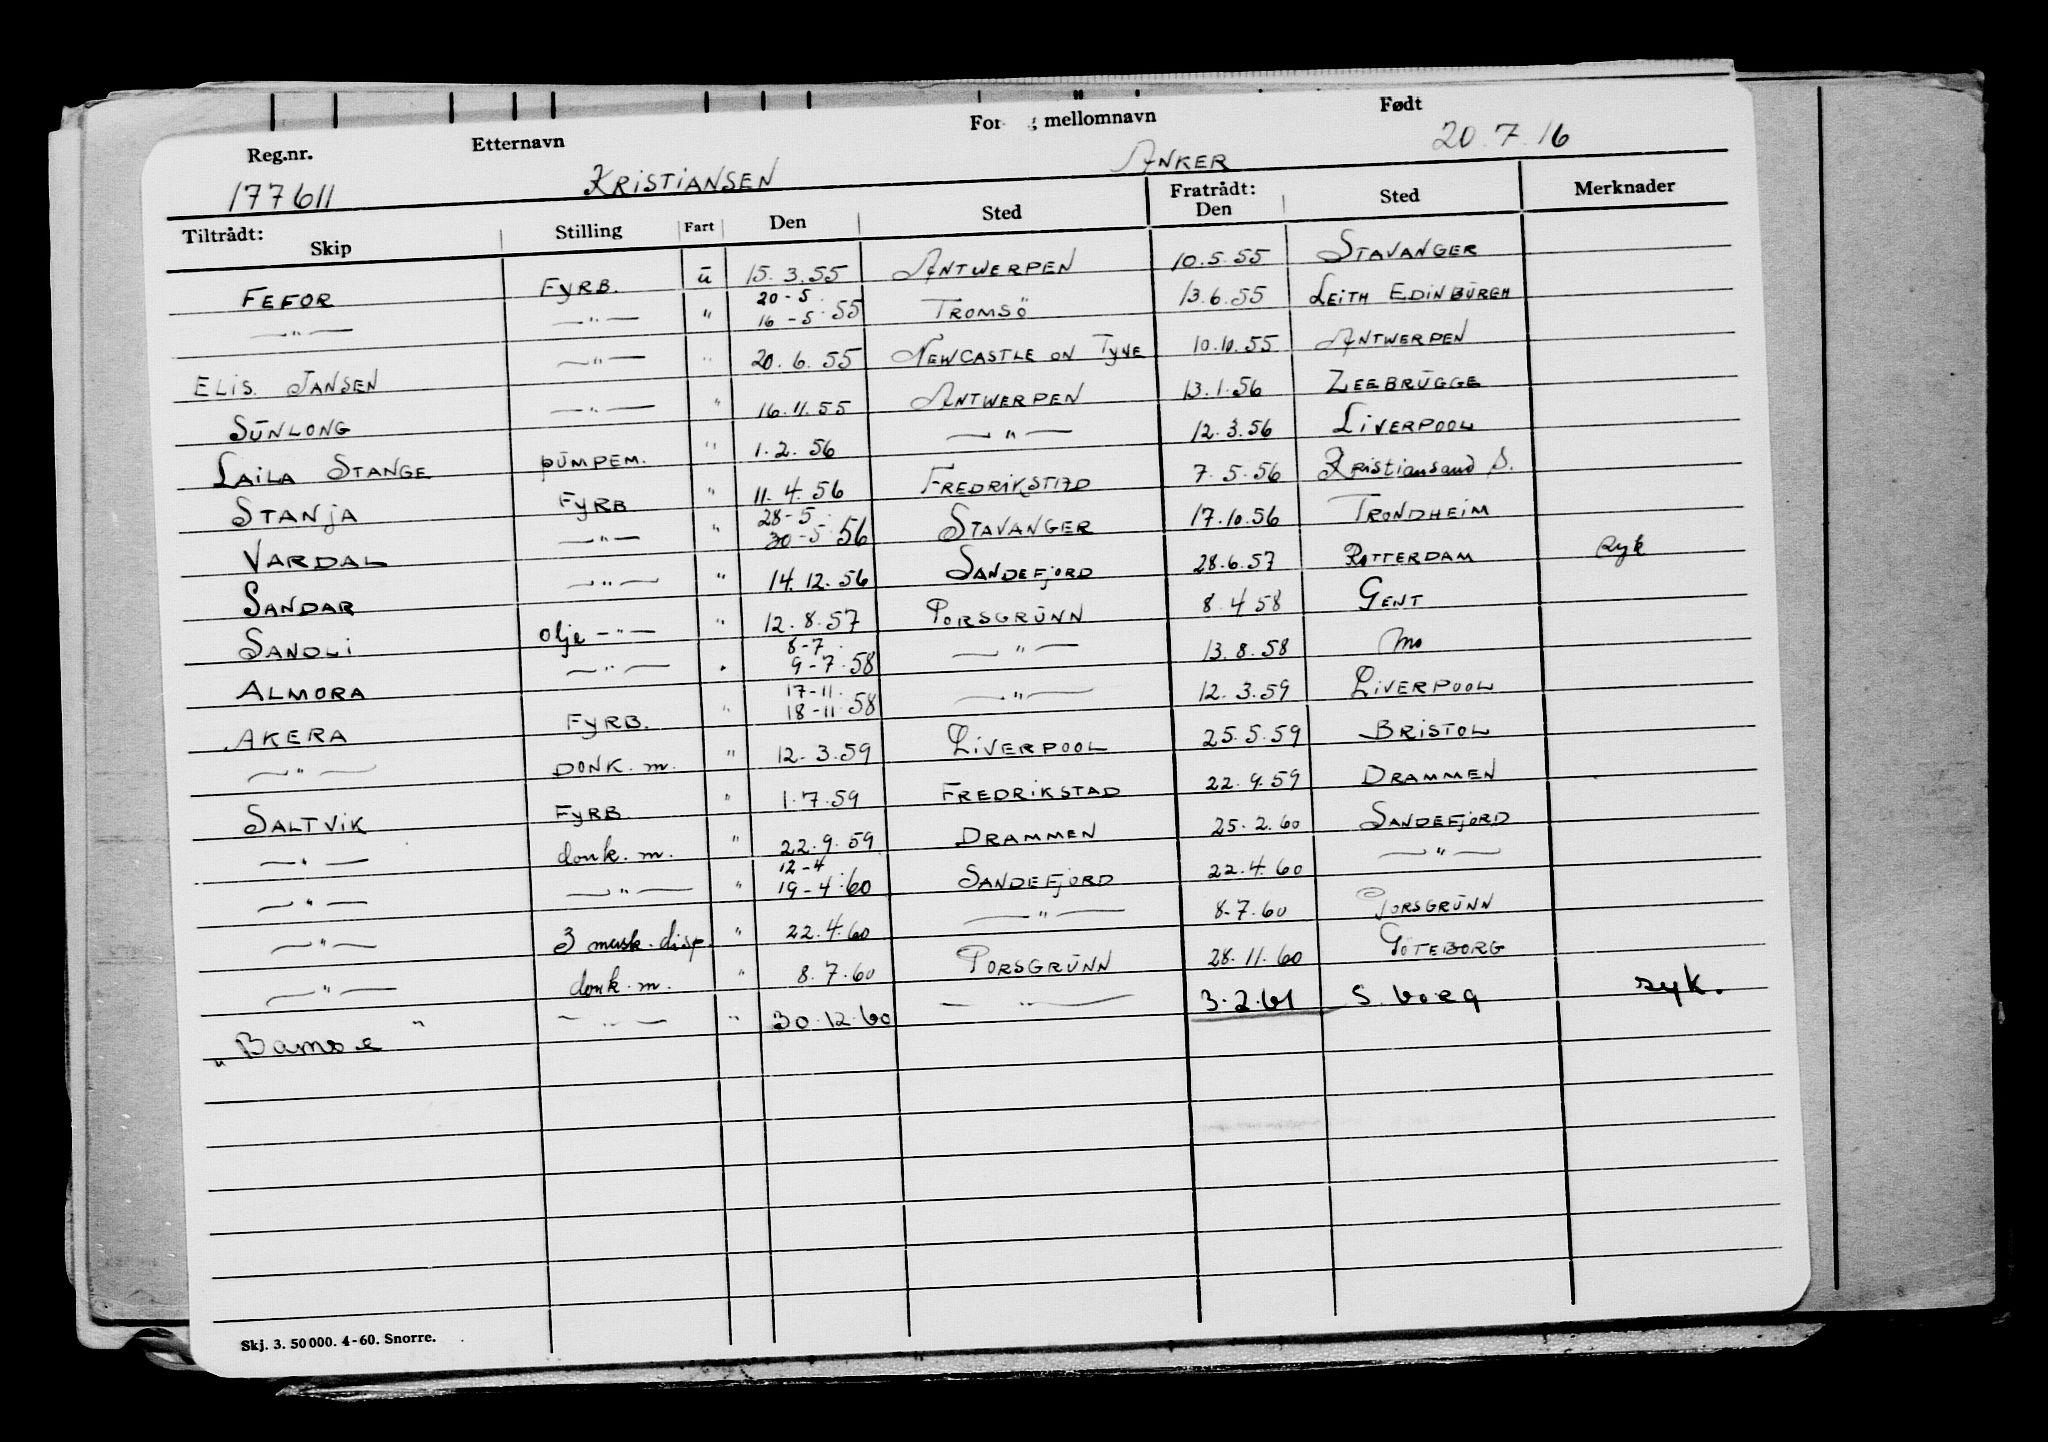 Reg.nr. Etternavn For- g mellomnavn Født
177611 KRISTIANSEN ANKER 20.7.16
Tiltrådt: Skip Stilling Fart Den Sted Fratrådt: Den Sted Merknader
FEFOR FYRB. ū 15.3.55 ANTWERPEN 10.5.55 STAVANGER
—"— —"— " 20-5. 16-5.55 TROMSÖ 13.6.55 LEITH EDINBŪRGH
ELIS. JANSEN —"— " 20.6.55 NEWCASTLE ON TYNE 10.10.55 ANTWERPEN
SŪNLONG —"— " 16.11.55 ANTWERPEN 13.1.56 ZEEBRŪGGE
LAILA STANGE pŪMPEM. " 1.2.56 —"— 12.3.56 LIVERPOOL
STANJA FYRB " 11.4.56 FREDRIKSTAD 7.5.56 Kristiansand S.
VARDAL —"— " 28-5. 30-5.56 STAVANGER 17.10.56 TRONDHEIM
SANDAR —"— " 14.12.56 SANDEFJORD 28.6.57 ROTTERDAM syk
SANDLI Olje —"— " 12.8.57 PORSGRŪNN 8.4.58 GENT
ALMORA —"— " 8-7. 9-7.58 —"— 13.8.58 Mo
AKERA FYRB. " 17-11. 18-11.58 —"— 12.3.59 LIVERPOOL
—"— DONK. m. " 12.3.59 LIVERPOOL 25.5.59 BRISTOL
SALTVIK FYRB. " 1.7.59 FREDRIKSTAD 22.9.59 DRAMMEN
—"— donk. m. " 22.9.59 DRAMMEN 25.2.60 SANDEFJORD
—"— —"— " 12-4 19-4.60 SANDEFJORD 22.4.60 —"—
—"— 3 mask. disp. " 22.4.60 —"— 8.7.60 PORSGRŪNN
—"— donk. m. " 8.7.60 PORSGRŪNN 28.11.60 GÖTEBORG
"Bamse" —"— " 30.12.60 —"— 3.2.61 S.borg syk.
Skj. 3. 50 000. 4-60. Snorre.